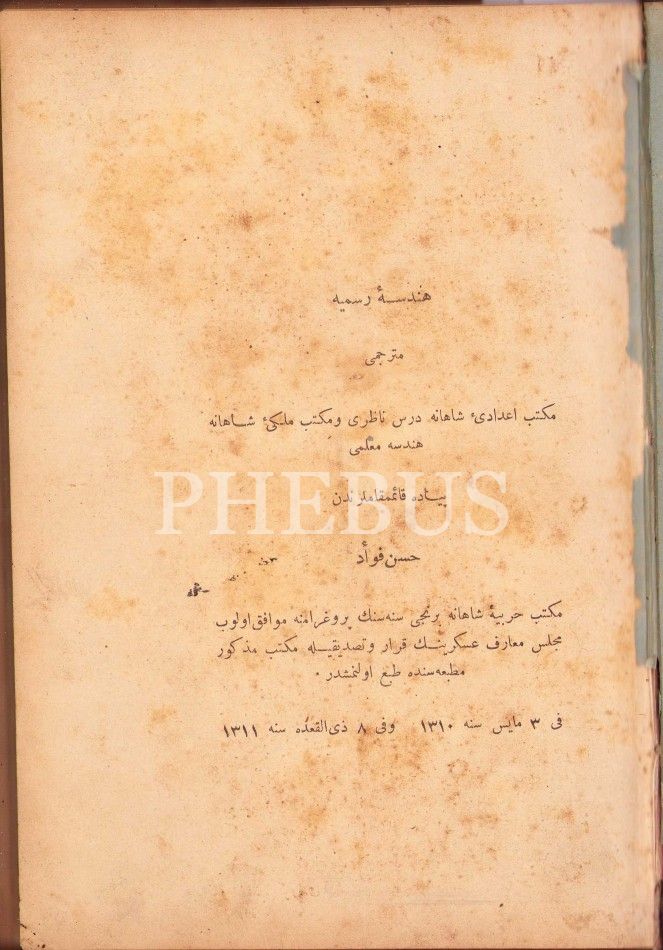 هندسۀ رسمیه
مترجمی
مکتب اعدادیٔ شاهانه درس ناظری و مکتب ملکیٔ شـاهانه
هندسه معلمی
پیاده قائممقاملرندن
PHEBUS
حسن فوأد
مکتب حربیۀ شاهانه برنجی سنه سنك پروغرامنه موافق اولوب
مجلس معارف عسکرینـك قرار وتصدیقیـله مکتب مذکور
مطبعه سنده طبع اولنمشدر ٠
فی ٣ مایس سنه ١٣١٠ وفی ٨ ذی القعده سنه ١٣١١